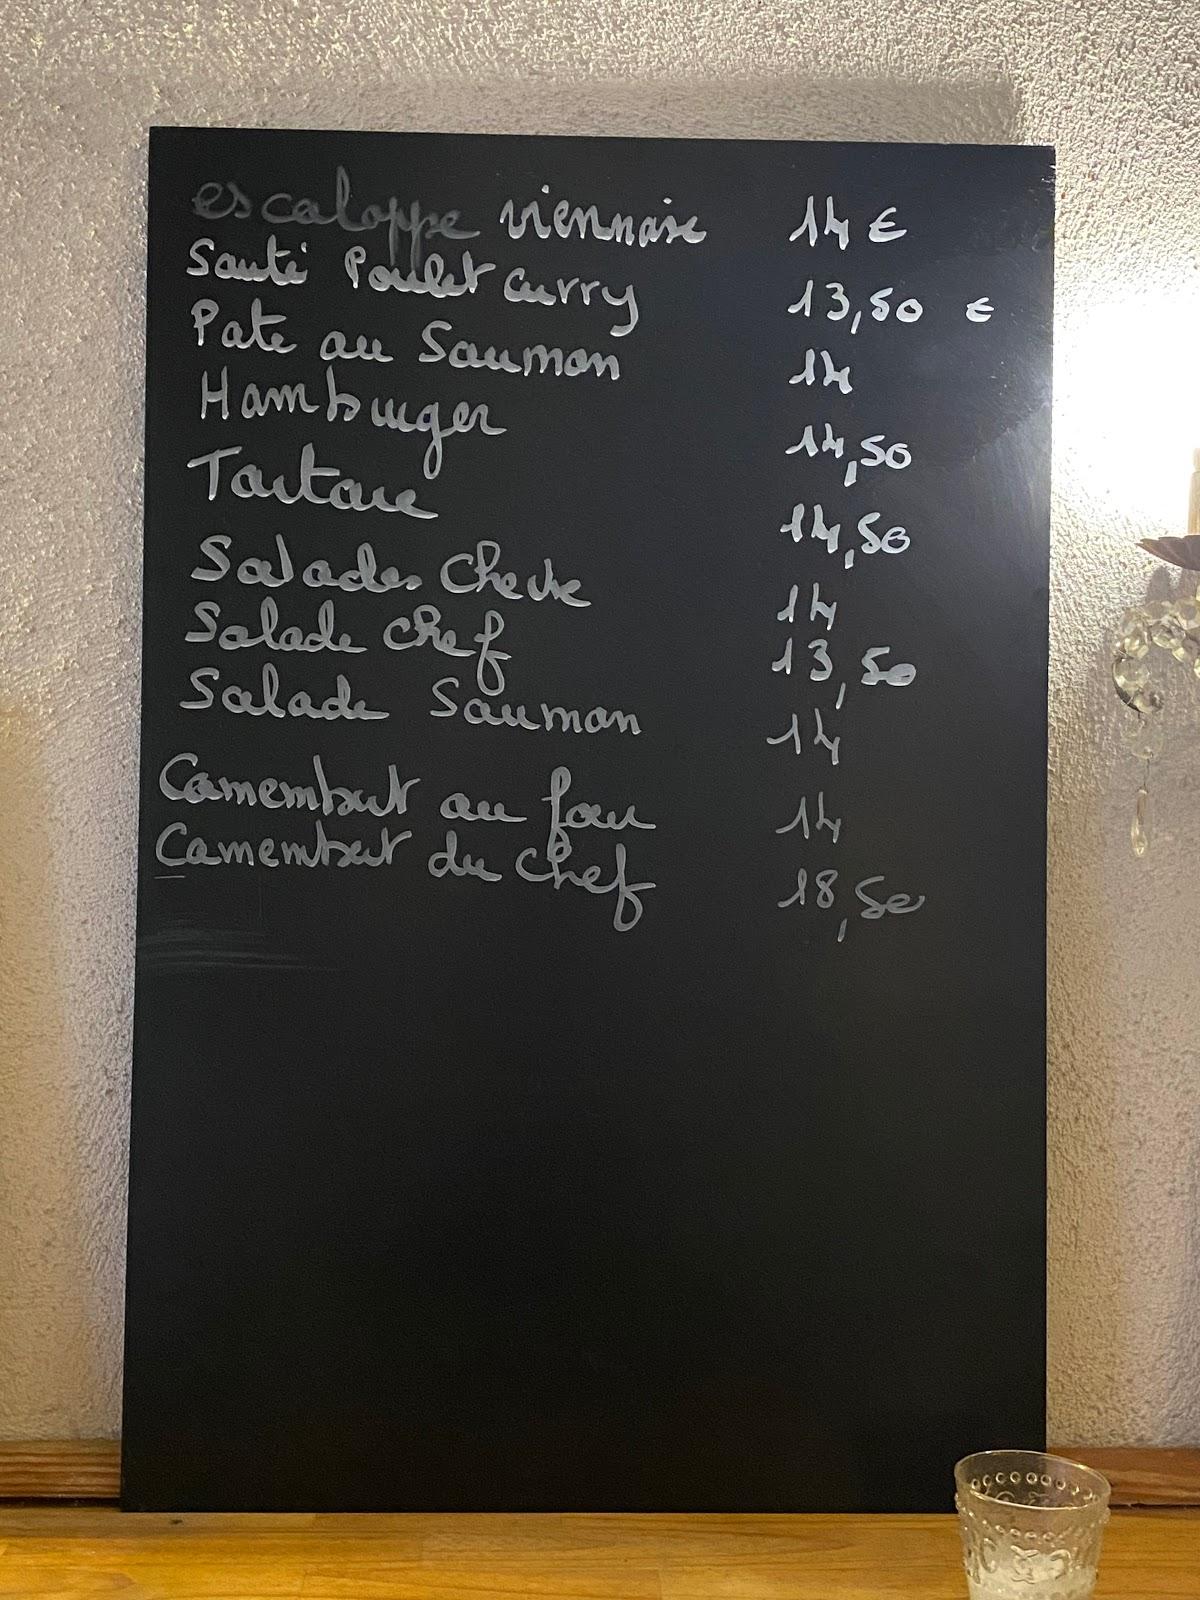 escaloppe viennaise 14 €
Sauté Poulet Curry 13,50 €
Pate au Saumon 14
Hamburger 14,50
Tartare 14,50
Salades Chevre 14
Salade Chef 13,50
Salade Saumon 14
Camembert au four 14
Camembert du Chef 18,50